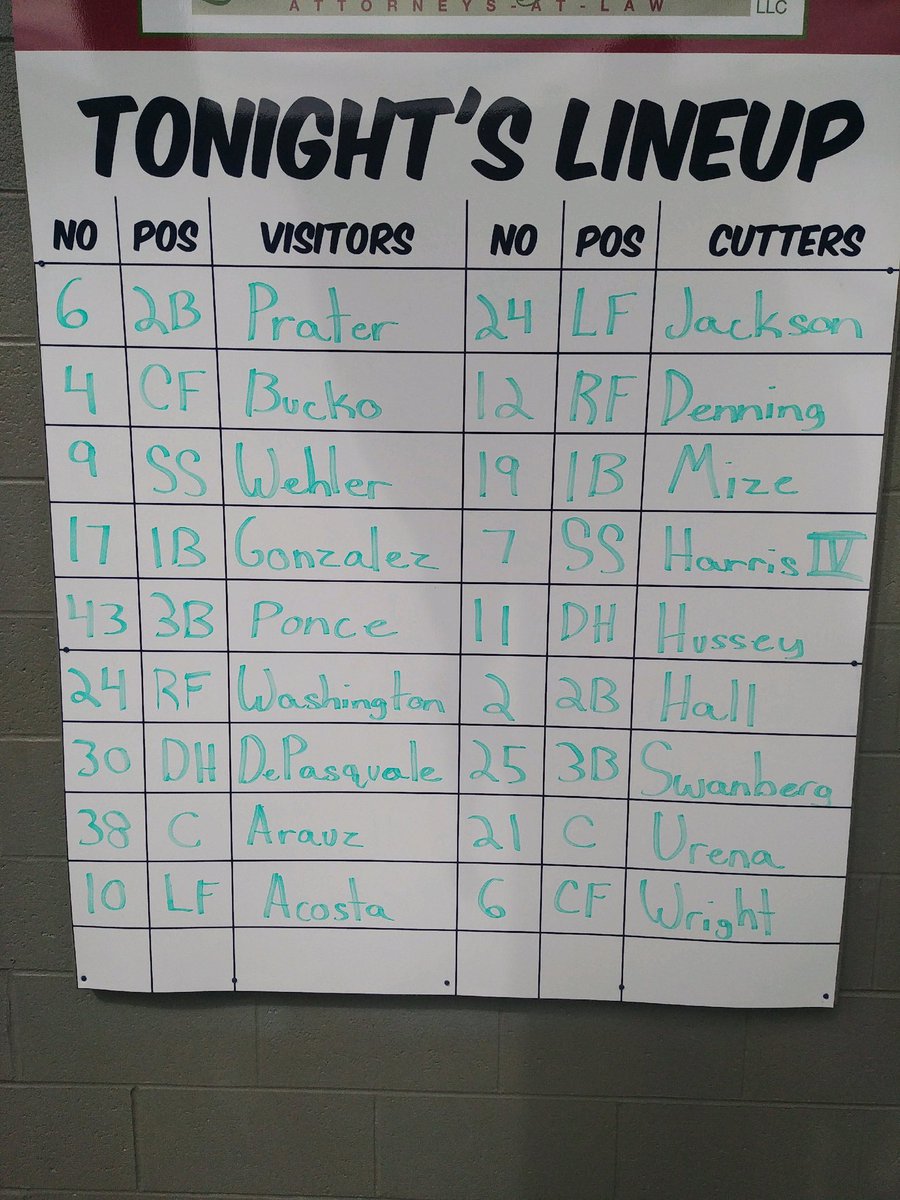 ATTORNEYS-AT-LAW LLC
TONIGHT'S LINEUP
NO POS VISITORS NO POS CUTTERS
6 2B Prater 24 LF Jackson
4 CF Bucko 12 RF Denning
9 SS Wehler 19 1B Mize
17 1B Gonzalez 7 SS Harris IV
43 3B Ponce 11 DH Hussey
24 RF Washington 2 2B Hall
30 DH DePasquale 25 3B Swanberg
38 C Arauz 21 C Urena
10 LF Acosta 6 CF Wright